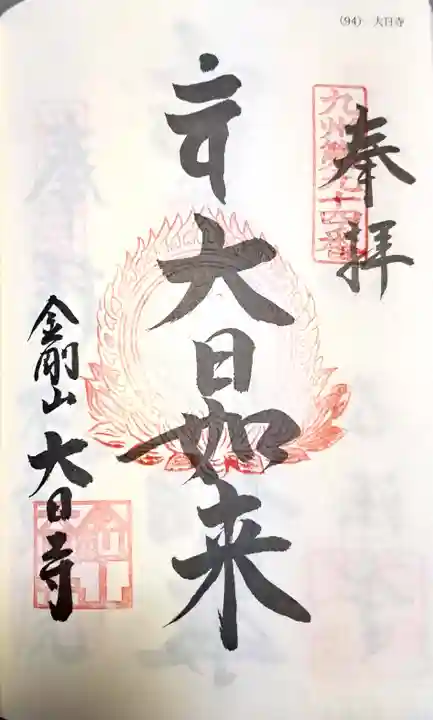 (94) 大日寺
奉拝
九州第九十四番
大日如来
金剛山 大日寺